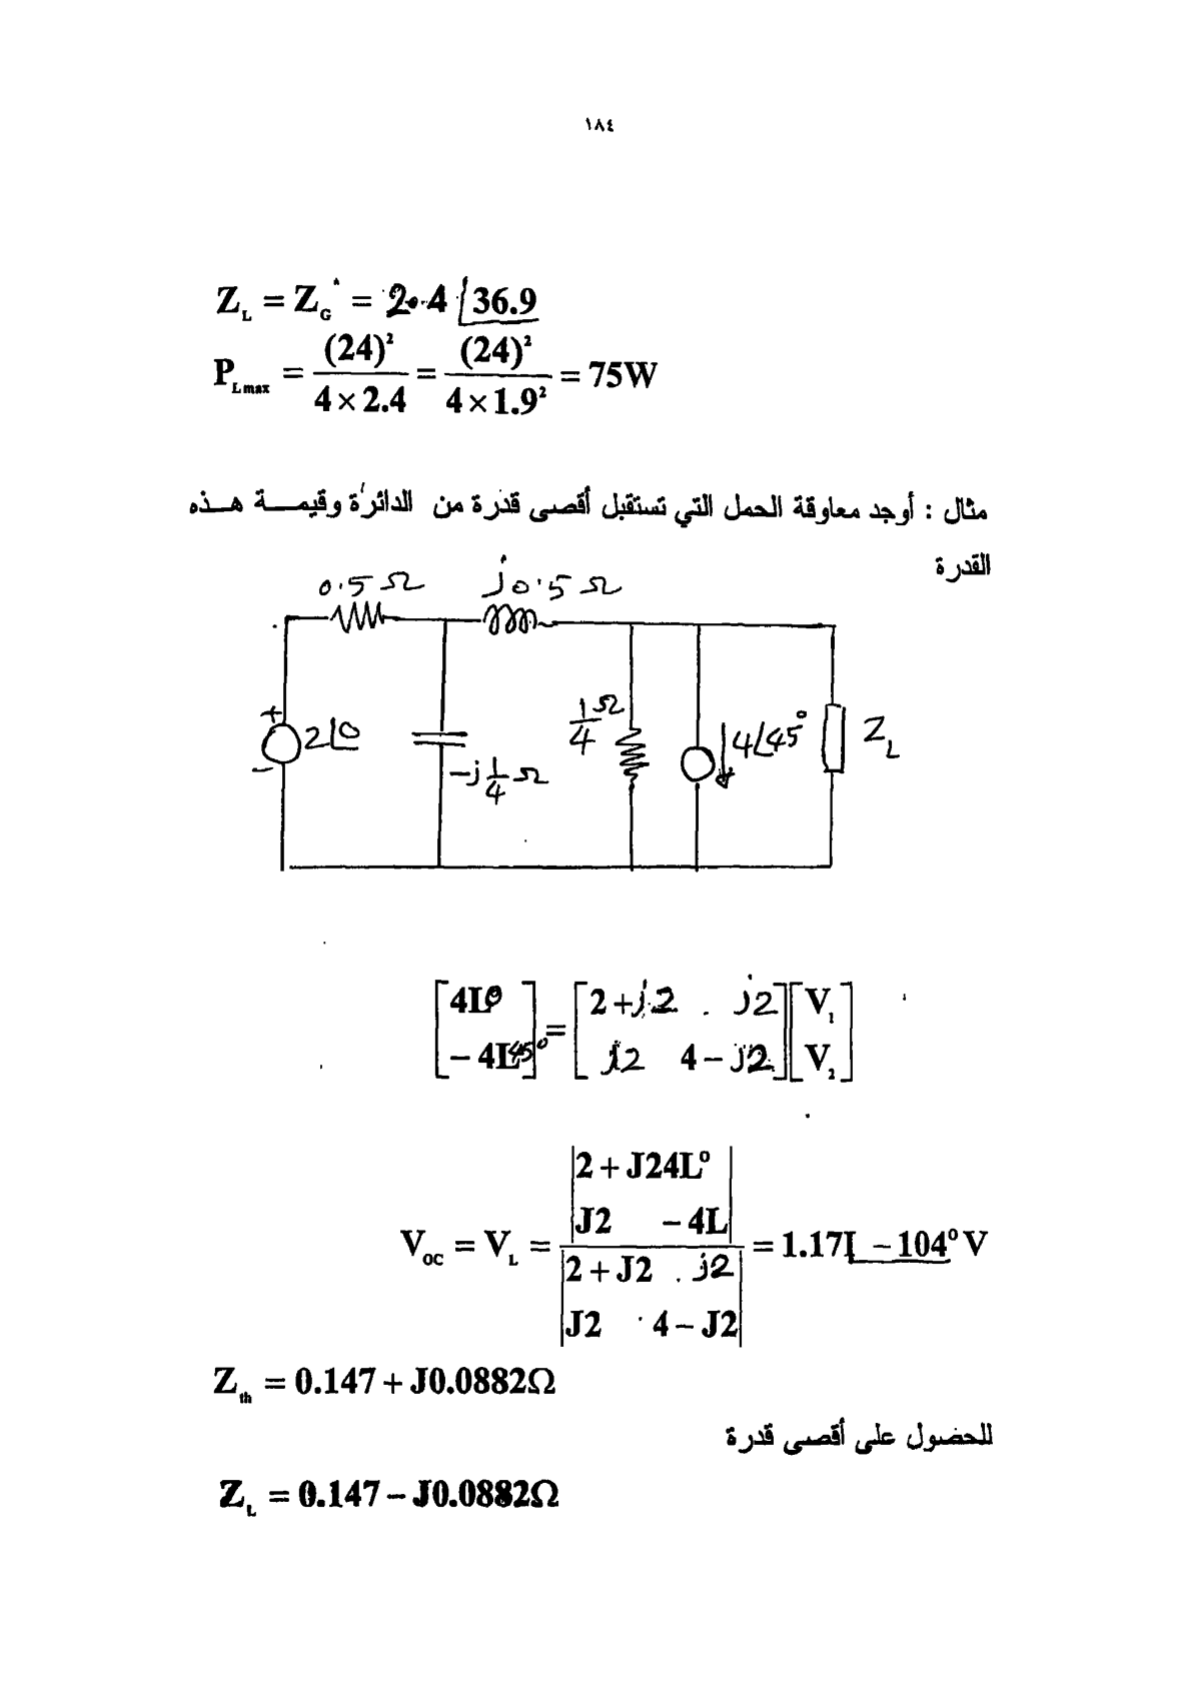 ١٨٤
Z_L = Z_G^* = 2.4 ∠36.9
P_Lmax = (24)² / (4 × 2.4) = (24)² / (4 × 1.9²) = 75W
مثال : أوجد معاوقة الحمل التي تستقبل أقصى قدرة من الدائرة وقيمة هذه
القدرة
0.5 Ω j0.5 Ω
+ 2∠0 − −j 1/4 Ω 1/4 Ω 4∠45° Z_L
[4L0 ; − 4L45°] = [2 + j2 j2 ; j2 4 − j2] [V₁ ; V₂]
V_OC = V_L = |2 + J24L° ; J2 − 4L| / |2 + J2 j2 ; J2 4 − J2| = 1.17L −104° V
Z_th = 0.147 + J0.0882Ω
للحضول على أقصى قدرة
Z_L = 0.147 − J0.0882Ω